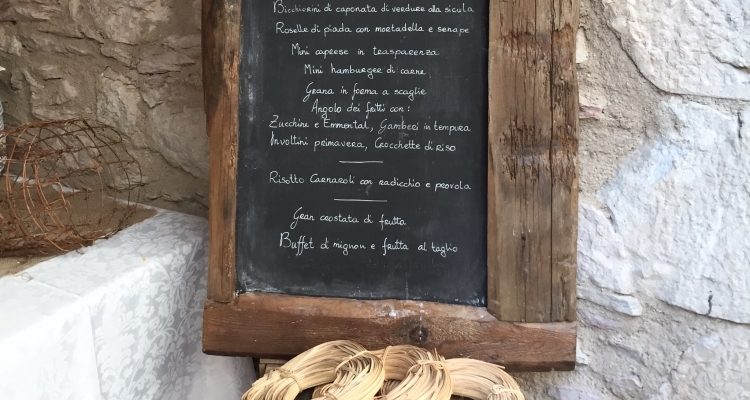 Bicchierini di caponata di verdure alla sicula
Roselle di piada con mortadella e senape
Mini caprese in trasparenza
Mini hamburger di carne
Grana in forma a scaglie
Angolo dei fritti con:
Zucchine e Emmental, Gamberi in tempura
Involtini primavera, Crocchette di riso
Risotto Carnaroli con radicchio e provola
Gran crostata di frutta
Buffet di mignon e frutta al taglio